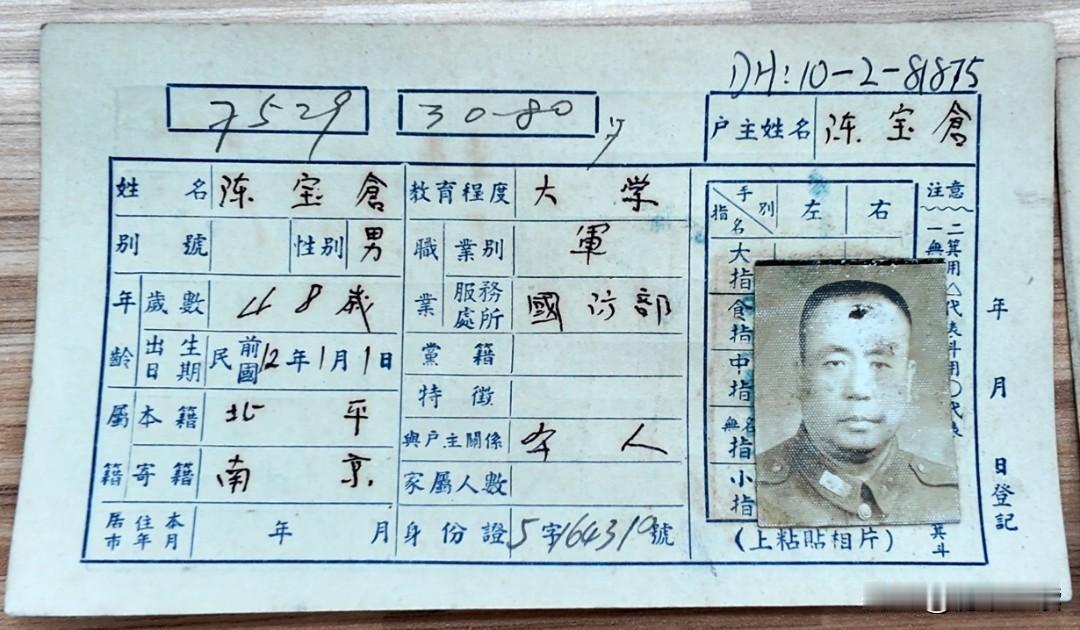 DH:10-2-81875
7529 30-80
戶主姓名 陈宝倉
姓名 陈宝倉 教育程度 大学
別號 性別 男 職業 業別 軍
年齡 歲數 48歲 服務處所 國防部
出生日期 民國前12年1月1日 黨籍
特徵
屬籍 本籍 北平 與戶主關係 本人
寄籍 南京 家屬人數
居住本市年月 年 月 身份證 5字164310號
手別 指名 左 右
大指
食指
中指
無名指
小指
(上粘貼相片)
注意
一無
二箕用△代表斗用〇代表
箕斗
年 月 日登記